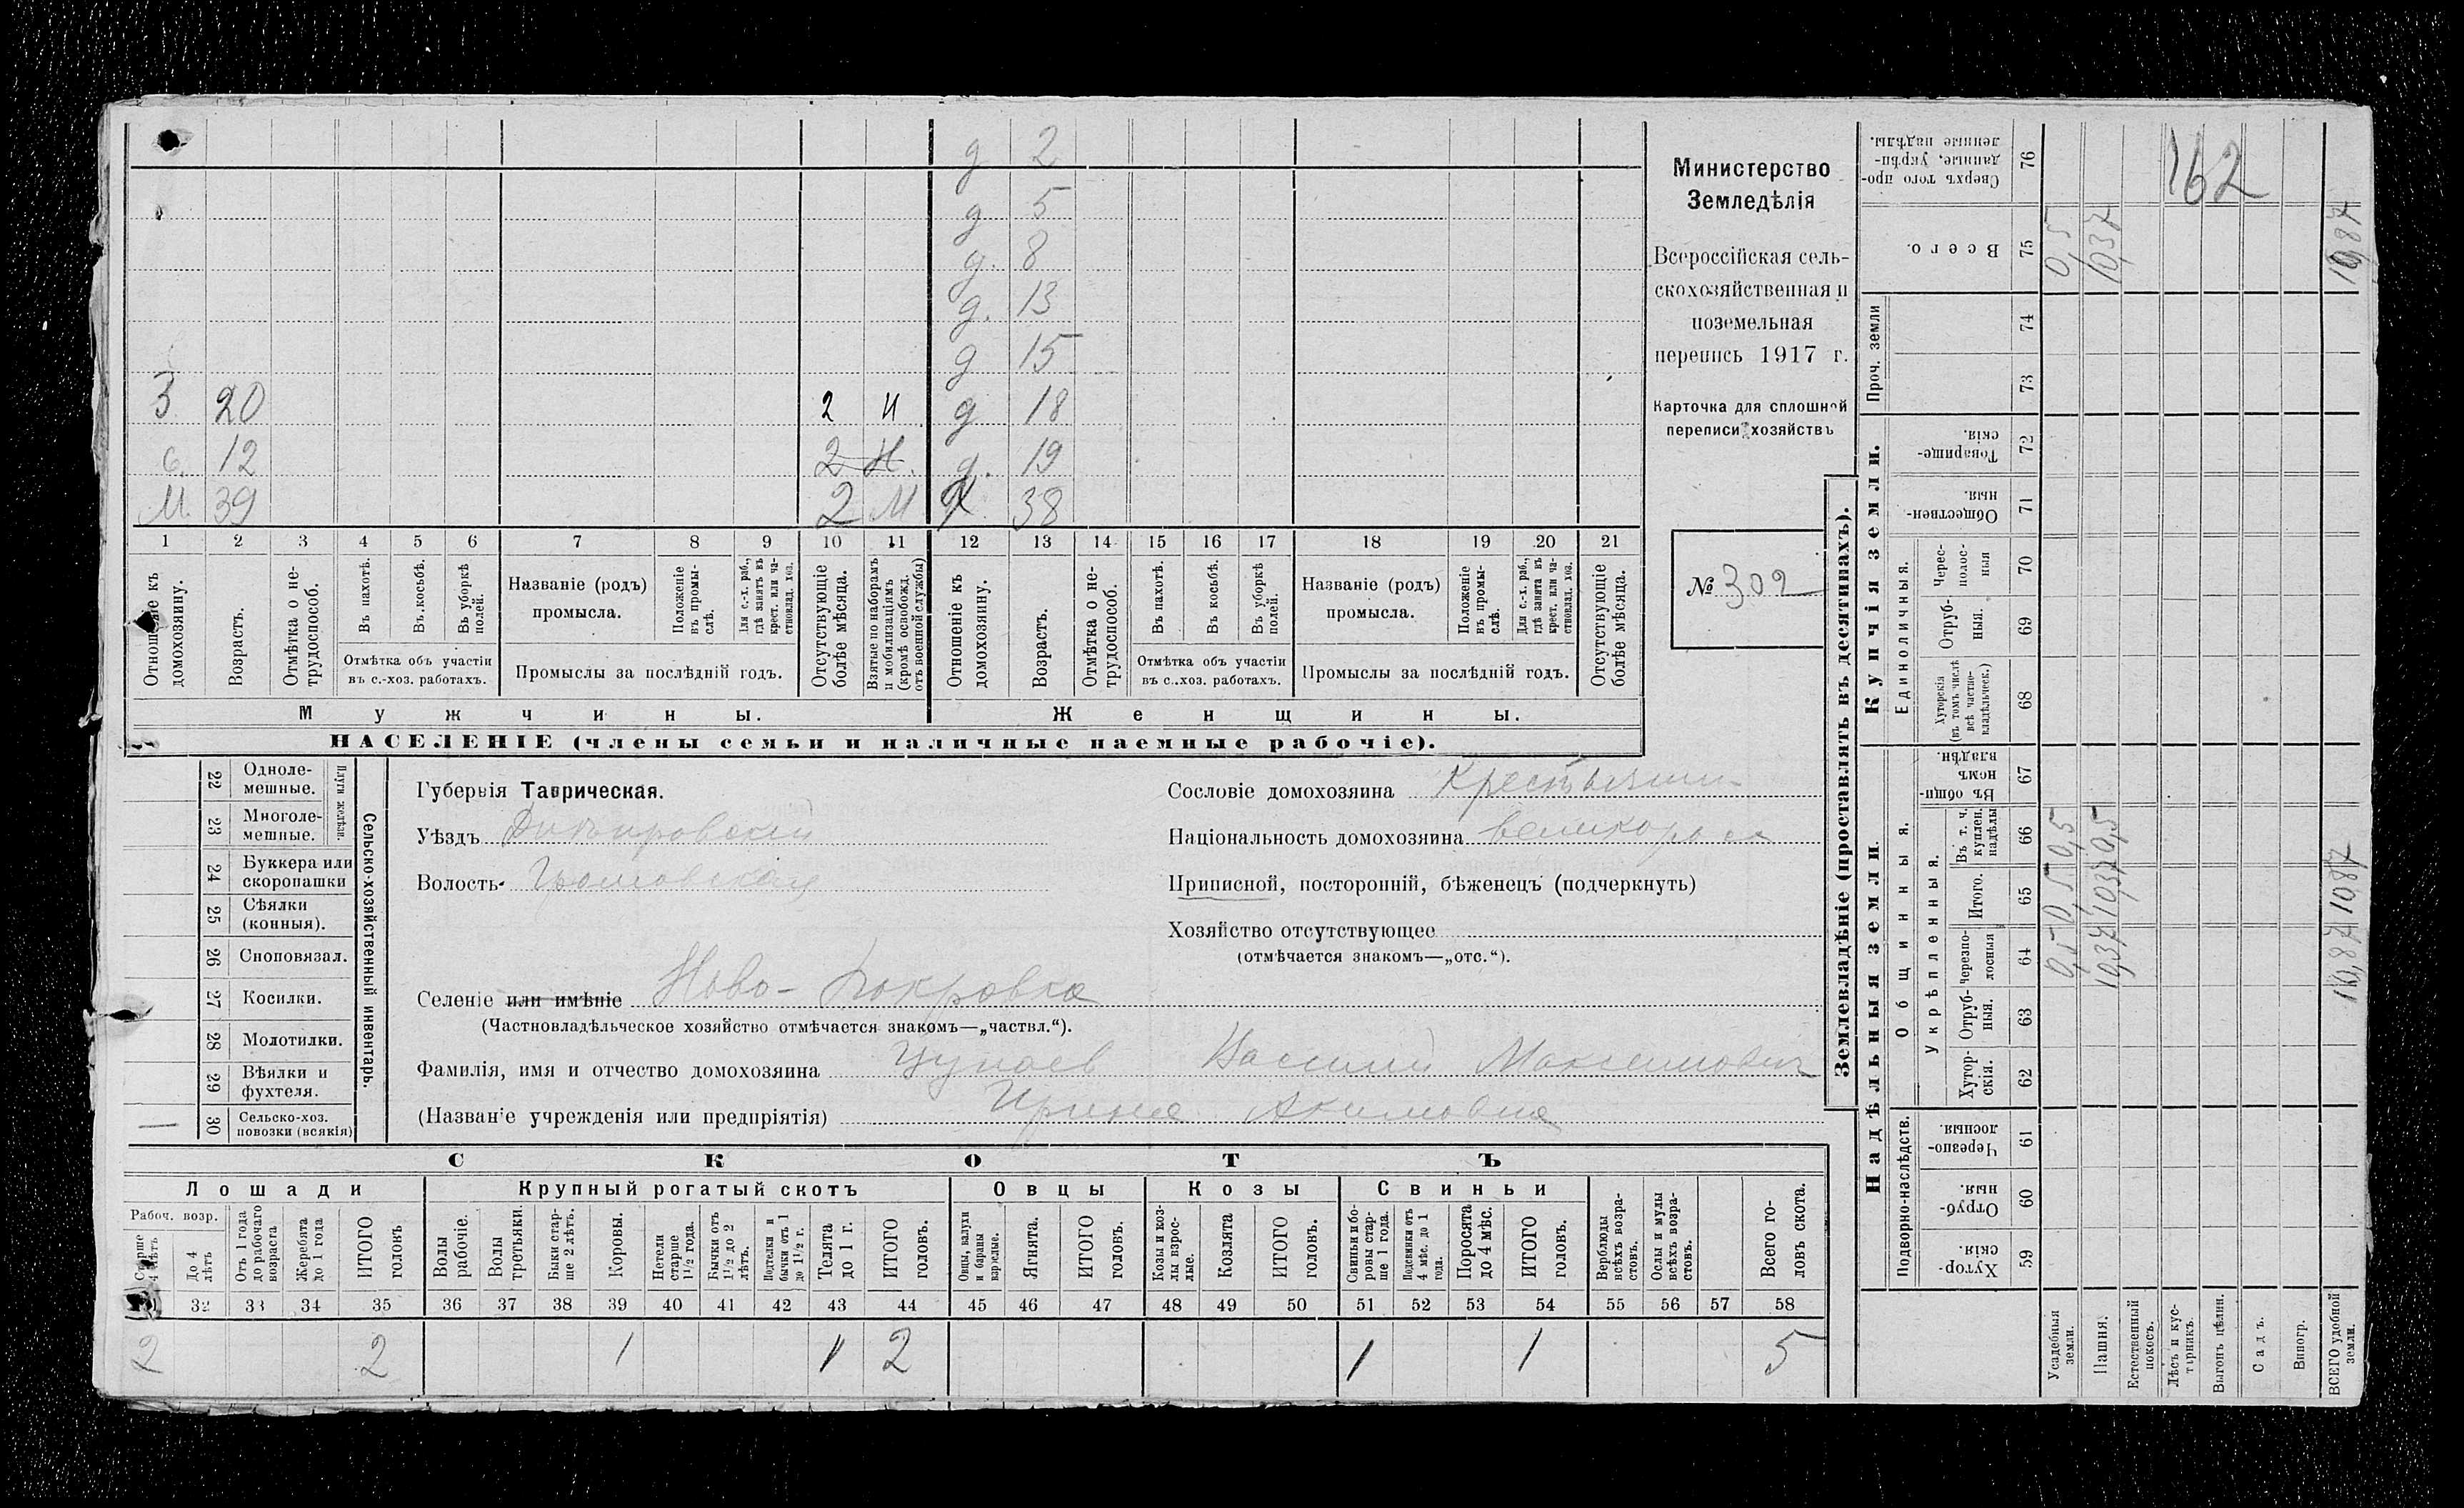 д 2
д 5
д. 8
д. 13
д 15
З 20 2 И д 18
с. 12 2 И. д. 19
М. 39 2 М Х 38
1 2 3 4 5 6 7 8 9 10 11 12 13 14 15 16 17 18 19 20 21
Отношеніе къ домохозяину.
Возрастъ.
Отмѣтка о не-трудоспособ.
Въ пахотѣ.
Въ косьбѣ.
Въ уборкѣ полей.
Отмѣтка объ участіи въ с.-хоз. работахъ.
Названіе (родъ) промысла.
Положеніе въ промы-слѣ.
Для с.-х. раб., гдѣ занятъ въ крест. или ча-стновлад. хоз.
Промыслы за послѣдній годъ.
Отсутствующіе болѣе мѣсяца.
Взятые по наборамъ и мобилизаціямъ (кромѣ освобожд. отъ военной службы)
Отношеніе къ домохозяину.
Возрастъ.
Отмѣтка о не-трудоспособ.
Въ пахотѣ.
Въ косьбѣ.
Въ уборкѣ полей.
Отмѣтка объ участіи въ с..хоз. работахъ.
Названіе (родъ) промысла.
Положеніе въ промы-слѣ.
Для с.-х. раб., гдѣ занята въ крест. или ча-стновлад. хоз.
Промыслы за послѣдній годъ.
Отсутствующіе болѣе мѣсяца.
Мужчины.
Женщины.
НАСЕЛЕНІЕ (члены семьи и наличные наемные рабочіе).
Министерство
Земледѣлія
Всероссійская сель-
скохозяйственная и
поземельная
перепись 1917 г.
Карточка для сплошной
переписи хозяйствъ
№ 302
22 Одноле-мешные.
23 Многоле-мешные.
Плуги желѣзн.
24 Буккера или скоропашки
25 Сѣялки (конныя).
26 Сноповязал.
27 Косилки.
28 Молотилки.
29 Вѣялки и фухтеля.
— 30 Сельско-хоз. повозки (всякія)
Сельско-хозяйственный инвентарь.
Губернія Таврическая.
Уѣздъ Днѣпровскій
Волость
Селеніе или имѣніе Ново-Покровка
(Частновладѣльческое хозяйство отмѣчается знакомъ—„частвл.“).
Фамилія, имя и отчество домохозяина Цупаев Василий Максимович
(Названіе учрежденія или предпріятія) Ирина Акимовна
Сословіе домохозяина Крестьянин
Національность домохозяина великоросс
Приписной, посторонній, бѣженецъ (подчеркнуть)
Хозяйство отсутствующее
(отмѣчается знакомъ—„отс.“).
СКОТЪ
Лошади Крупный рогатый скотъ Овцы Козы Свиньи
Рабоч. возр.
Старше 4 лѣтъ
До 4 лѣтъ
Отъ 1 года до рабочаго возраста
Жеребята до 1 года
ИТОГО головъ
Волы рабочіе.
Волы третьяки.
Быки стар-ше 2 лѣтъ.
Коровы.
Нетели старше 1½ года.
Бычки отъ 1½ до 2 лѣтъ.
Подтелки и бычки отъ 1 до 1½ г.
Телята до 1 г.
ИТОГО головъ.
Овцы, валухи и бараны взрослые.
Ягнята.
ИТОГО головъ.
Козы и коз-лы взрос-лые.
Козлята
ИТОГО головъ.
Свиньи и бо-ровы стар-ше 1 года.
Подсвинки отъ 4 мѣс. до 1 года.
Поросята до 4 мѣс.
ИТОГО головъ.
Верблюды всѣхъ возра-стовъ.
Ослы и мулы всѣхъ возра-стовъ.
Всего го-ловъ скота.
32 33 34 35 36 37 38 39 40 41 42 43 44 45 46 47 48 49 50 51 52 53 54 55 56 57 58
2 2 1 1 2 1 1 5
Землевладѣніе (проставлять въ десятинахъ).
Надѣльныя земли.
Купчія земли.
Проч. земли
Подворно-наслѣдств.
Общинныя.
Укрѣпленныя.
Единоличныя.
Хутор-скія. 59
Отруб-ныя. 60
Черезпо-лосныя. 61
Хутор-скія. 62
Отруб-ныя. 63
Черезпо-лосныя 64
Итого. 65
Въ т. ч. куплен. надѣлы 66
Въ общин-номъ владѣн. 67
Хуторскія (въ томъ числѣ всѣ частно-владѣльческ.) 68
Отруб-ныя. 69
Черес-полос-ныя 70
Обществен-ныя. 71
Товарище-скія. 72
73
74
Всего. 75
Сверхъ того про-данные, укрѣп-ленные надѣлы. 76
Усадебныя земли. 0,5 0,5 0,5 0,5
Пашня. 10,37 10,37 0,5 10,37
Естественный покосъ.
Лѣсъ и кус-тарникъ.
Выгонъ цѣлин.
Садъ.
Виногр.
ВСЕГО удобной земли. 10,87 10,87 10,87
162